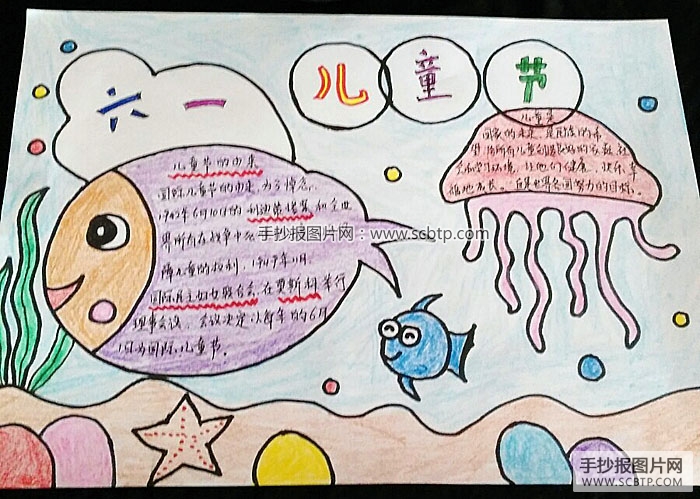 六一
儿童节
儿童节的由来
国际儿童节的由来,为了悼念
1942年6月10日的利迪策惨案和全世
界所有在战争中
障儿童的权利,1949年11月
国际民主妇女联合会在莫斯科举行
理事会议,会议决定以每年的6月
1日为国际儿童节。
儿童是
国家的未来,是民族的希
望,给所有儿童创造良好的家庭,社
会和学习环境,让他们健康,快乐,幸
福地成长。一直是世界各国努力的目标。
手抄报图片网:www.scbtp.com
手抄报图片网
WWW.SCBTP.COM